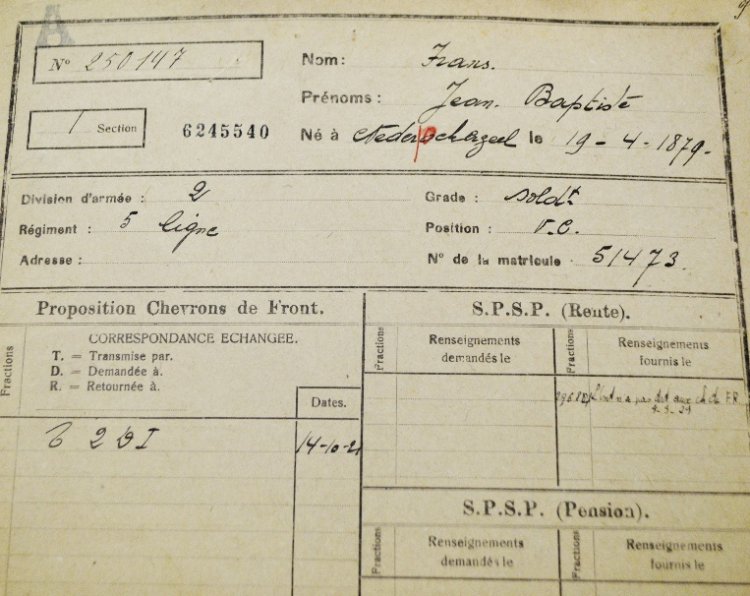 A
Nº 250147
1 Section
6245540
Nom: Frans.
Prénoms: Jean. Baptiste
Né à Nederockerzeel le 19-4-1879-
Division d'armée: 2
Régiment: 5 ligne
Adresse:
Grade: soldt
Position:
Nº de la matricule 51473.
Proposition Chevrons de Front.
Fractions
CORRESPONDANCE ECHANGÉE.
T. = Transmise par.
D. = Demandée à.
R. = Retournée à.
Dates.
2 DI
14-10-21
S.P.S.P. (Rente).
Fractions
Renseignements
demandés le
Fractions
Renseignements
fournis le
n'a pas dt aux ch. de FR
S.P.S.P. (Pension).
Fractions
Renseignements
demandés le
Fractions
Renseignements
fournis le